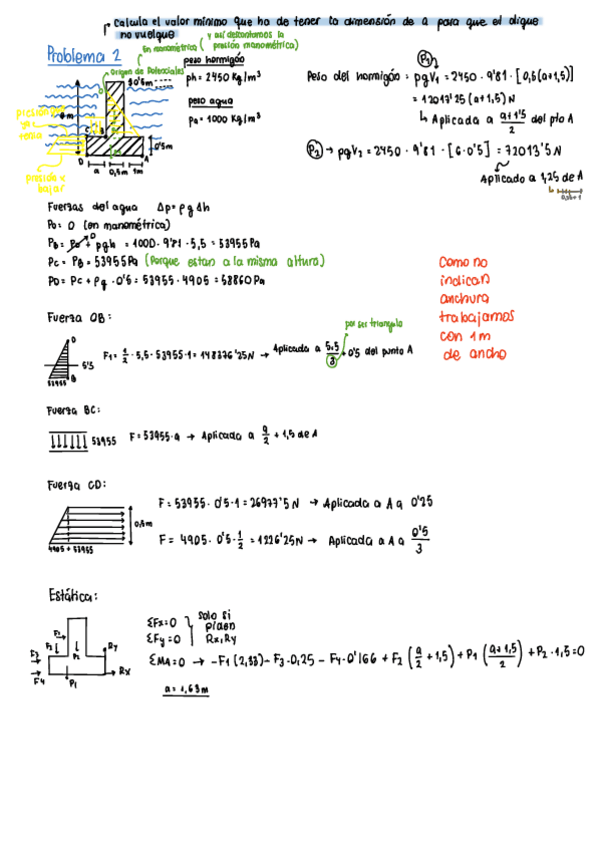 Calcula el valor mínimo que ha de tener la dimensión de a para que el dique
no vuelque
Problema 2
En manométrica ( y así descontamos la
presión manométrica)
Origen de Potenciales
0'5m
0'5m
a 0,5m 1m
D A
peso hormigón
ρh = 2450 Kg/m³
peso agua
ρa = 1000 Kg/m³
P1
Peso del hormigón = ρgV1 = 2450 · 9'81 · [0,5(a+1,5)]
= 12013'25 (a+1,5) N
↳ Aplicada a (a+1'5)/2 del pto A
P2 → ρgV2 = 2450 · 9'81 · [6·0'5] = 72013'5N
Aplicado a 1,25 de A
Fuerzas del agua Δp = ρgΔh
P0 = 0 (en manométrica)
PB = P0 + ρgh = 1000 · 9'81 · 5,5 = 53955 Pa
PC = PB = 53955 Pa (Porque estan a la misma altura)
PD = PC + ρg · 0'5 = 53955 · 4905 = 58860 Pa
Como no
indican
anchura
trabajamos
con 1 m
de ancho
Fuerza OB:
por ser triangulo
5'5
53955
F1 = 1/2 · 5,5 · 53955 · 1 = 148376'25N → Aplicada a 5.5/3 + 0'5 del punto A
Fuerza BC:
53955 F = 53955 · a → Aplicada a a/2 + 1,5 de A
Fuerza CD:
0,5m
4905 + 53955
F = 53955 · 0'5 · 1 = 26977'5N → Aplicada a A a 0'25
F = 4905 · 0'5 · 1/2 = 1226'25N → Aplicada a A a 0'5/3
Estática:
F1
F2
F3
F4
P2
P1
Ry
Rx
ΣFx=0
ΣFy=0
Solo si
piden
Rx, Ry
ΣMA=0 → -F1 (2,33) - F3·0,25 - F4·0'166 + F2 (a/2 + 1,5) + P1 ((a+1,5)/2) + P2 · 1,5 = 0
a = 1,63m